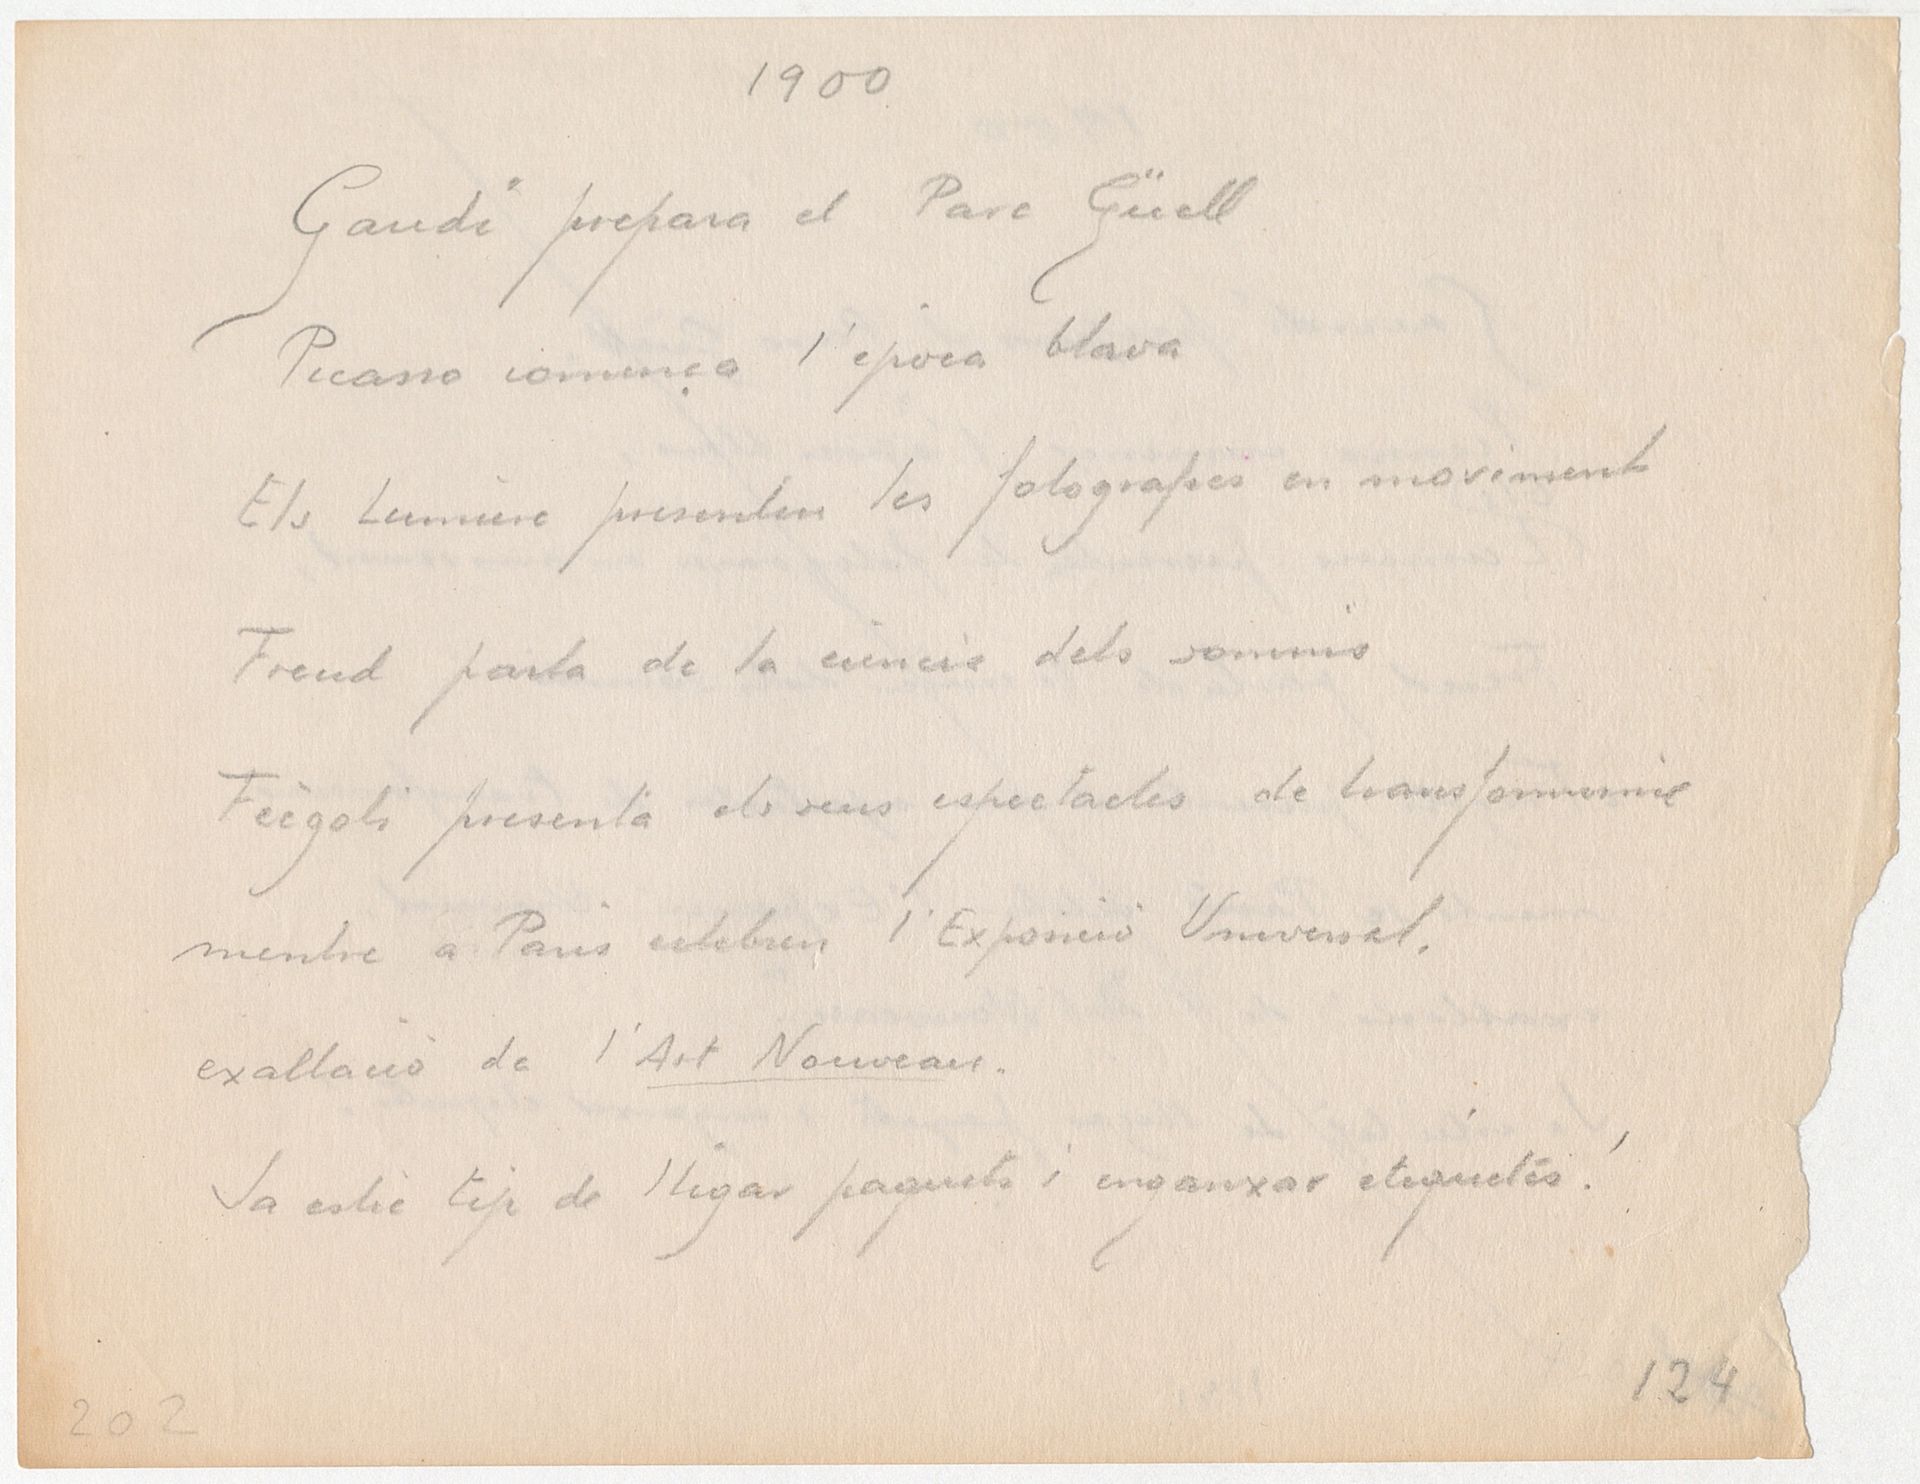 1900
Gaudi prepara el Parc Güell
Picasso començа l'época blava
Els Lumiere presenten les fotografies en moviment
Freud parla de la ciencia dels somnis
Frégoli presenta els seus espectacles de transformisme
mentre a Paris celebren l'Exposició Universal.
exaltació de l'Art Nouveau.
Ja estic tip de lligar paquets i enganxar etiquetes!
124
202